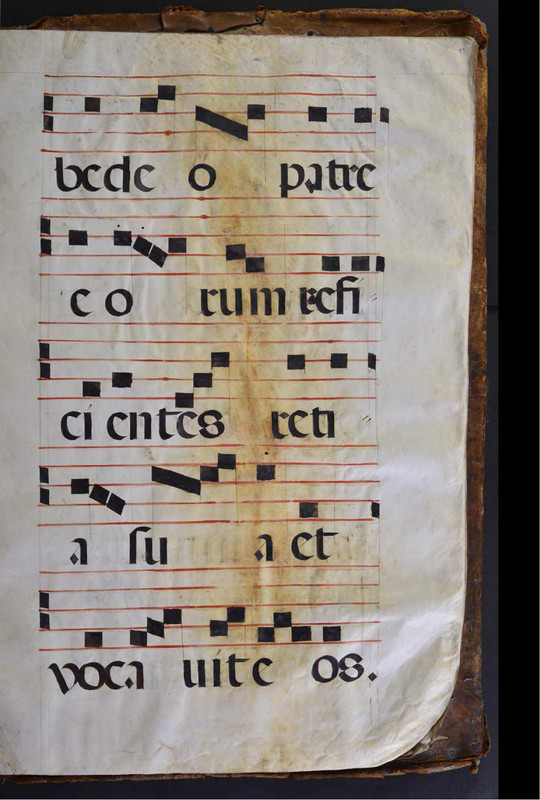 bede o patre
eo rum refi
cientes reti
a su a et
voca uite os.